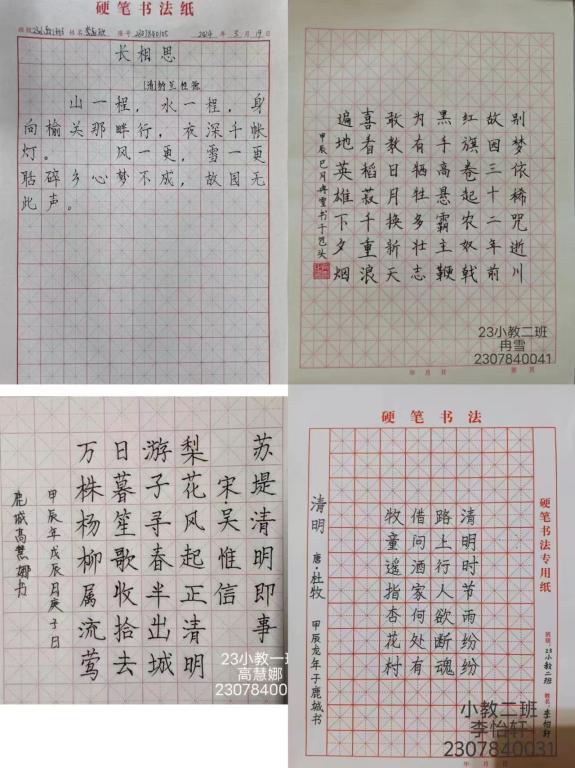 硬笔书法纸
班级 姓名 座号 2307840105 2024 年 3 月 19 日
长相思
[清]纳兰性德
山一程，水一程，身
向榆关那畔行，夜深千帐
灯。 风一更，雪一更
聒碎乡心梦不成，故园无
此声。
别梦依稀咒逝川
故园三十二年前
红旗卷起农奴戟
黑手高悬霸主鞭
为有牺牲多壮志
敢教日月换新天
喜看稻菽千重浪
遍地英雄下夕烟
甲辰巳月冉雪书于包头
23小教二班
冉雪
2307840041
年 月 日 第 页
苏堤清明即事
宋·吴惟信
梨花风起正清明
游子寻春半出城
日暮笙歌收拾去
万株杨柳属流莺
甲辰年戊辰月庚子日
鹿城高慧娜书
23小教一班
高慧娜
23078400
硬笔书法
硬笔书法专用纸
班级：23小教二班 姓名：李怡轩
清明时节雨纷纷
路上行人欲断魂
借问酒家何处有
牧童遥指杏花村
清明 唐·杜牧
甲辰龙年于鹿城书
小教二班
李怡轩
2307840031
年 月 日